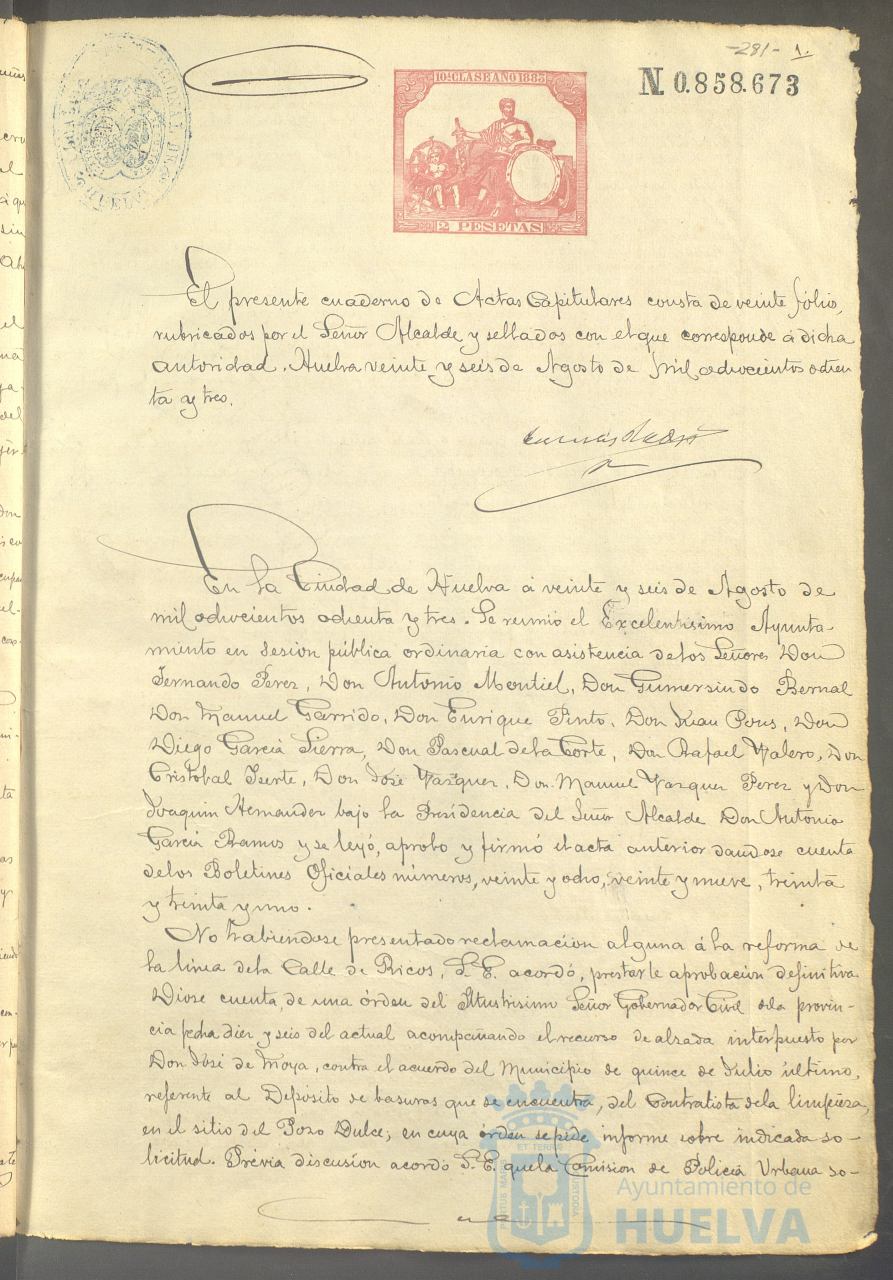 -281- 1.
10ª CLASE AÑO 1883
N. 0.858.673
2 PESETAS
El presente cuaderno de Actas Capitulares consta de veinte fólio,
rubricados por el Señor Alcalde y sellados con el que corresponde á dicha
autoridad. Huelva veinte y seis de Agosto de mil ochocientos ochen
ta y tres.
En la Ciudad de Huelva á veinte y seis de Agosto de
mil ochocientos ochenta y tres. Se reunió el Excelentisimo Ayunta-
miento en sesion pública ordinaria con asistencia de los Señores Don
Fernando Perez, Don Antonio Montiel, Don Gumersindo Bernal
Don Manuel Garrido, Don Enrique Pinto, Don Juan Pons, Don
Diego Garcia Sierra, Don Pascual de la Corte, Don Rafael Valero, Don
Cristobal Iserte, Don José Vazquez, Don Manuel Vazquez Perez y Don
Joaquin Hernandez bajo la Presidencia del Señor Alcalde Don Antonio
Garcia Ramos y se leyó, aprobo y firmó el acta anterior dandose cuenta
de los Boletines Oficiales números, veinte y ocho, veinte y nueve, treinta
y treinta y uno.
No habiendose presentado reclamacion alguna á la reforma de
la linea de la Calle de Ricos, S. E. acordó, prestarle aprobacion definitiva.
Diose cuenta, de una órden del Iltustrisimo Señor Gobernador Civil de la provin-
cia fecha diez y seis del actual acompañando el recurso de alzada interpuesto por
Don José de Moya, contra el acuerdo del Municipio de quince de Julio último,
referente al Depósito de basuras que se encuentra, del Contratista de la limpieza,
en el sitio del Pozo Dulce; en cuya órden se pide informe sobre indicada so-
licitud. Prévia discusion acordó S. E. que la Comision de Policia Urbana so-
Ayuntamiento de
HUELVA